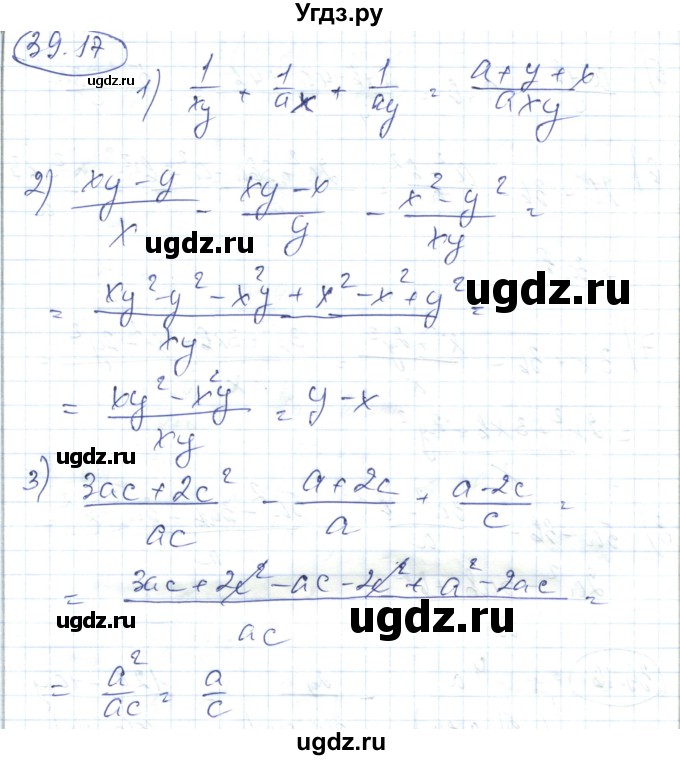 Угдз.ру
39.17
1) 1/xy + 1/ax + 1/ay = (a+y+x)/axy
2) (xy-y)/x - (xy-x)/y - (x²-y²)/xy =
ugdz.ru
ugdz.ru
= (xy²-y²-x²y+x²-x²+y²)/xy =
ugdz.ru
= (xy²-x²y)/xy = y-x
ugdz.ru
3) (3ac+2c²)/ac - (a+2c)/a + (a-2c)/c =
= (3ac+2c²-ac-2c²+a²-2ac)/ac =
ugdz.ru
ugdz.ru
= a²/ac = a/c
ugdz.ru
ugdz.ru